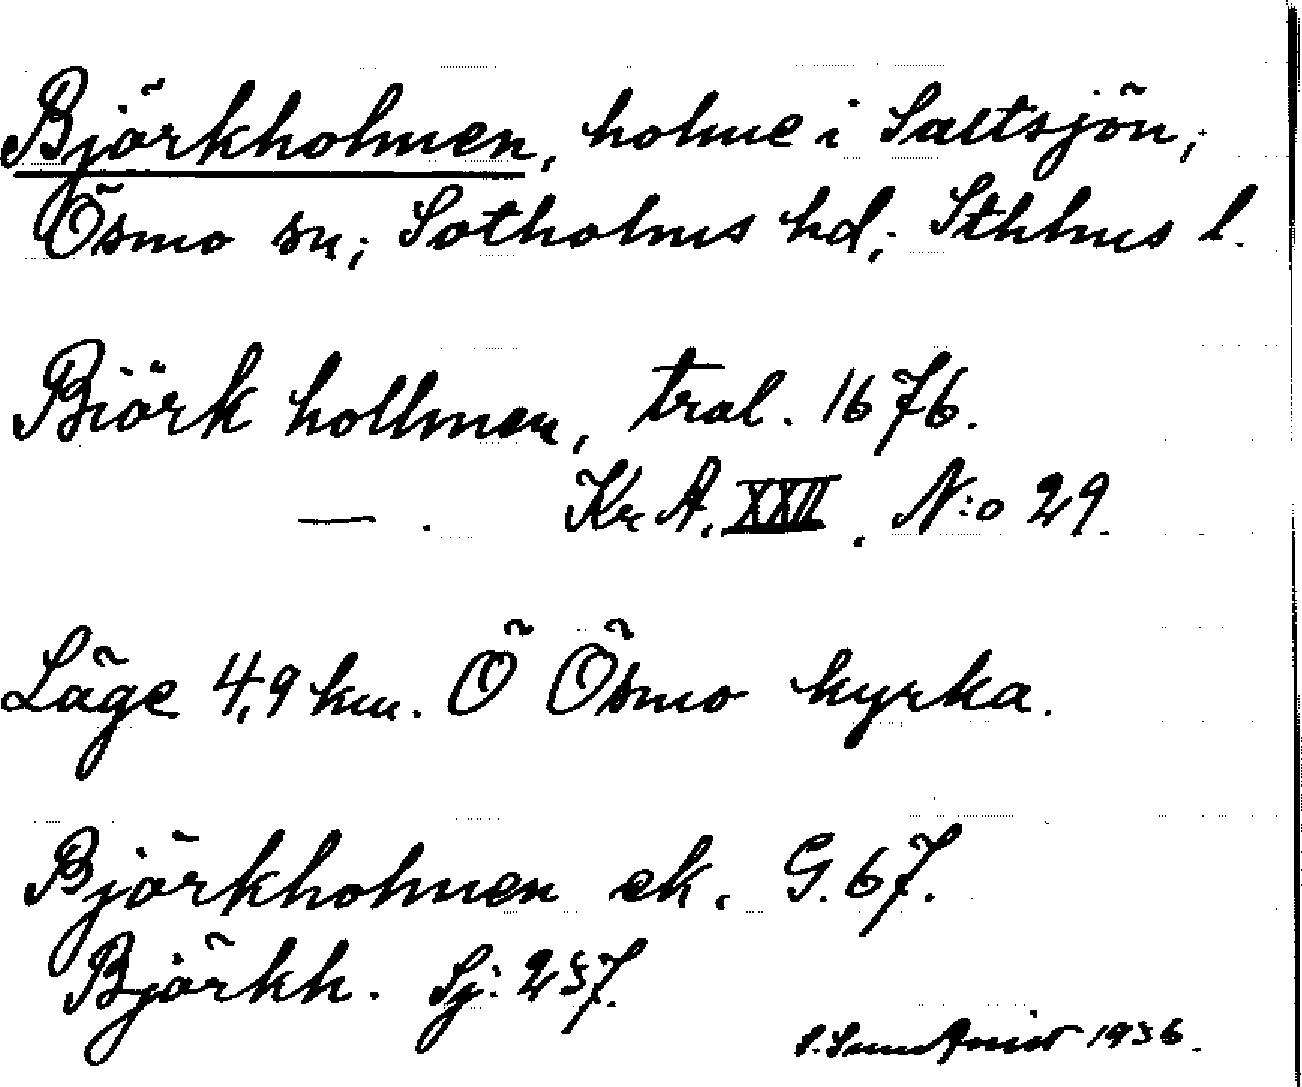 Björkholmen, holme i Saltsjön,
Ösmo sn, Sotholms hd, Sthlms l.
Biörk hollmen, tral. 1676.
— . Kr A. XXII. N:o 29.
Läge 4,9 km. Ö Ösmo kyrka.
Björkholmen ek. G. 67.
Björkh. Sj: 257.
1936.